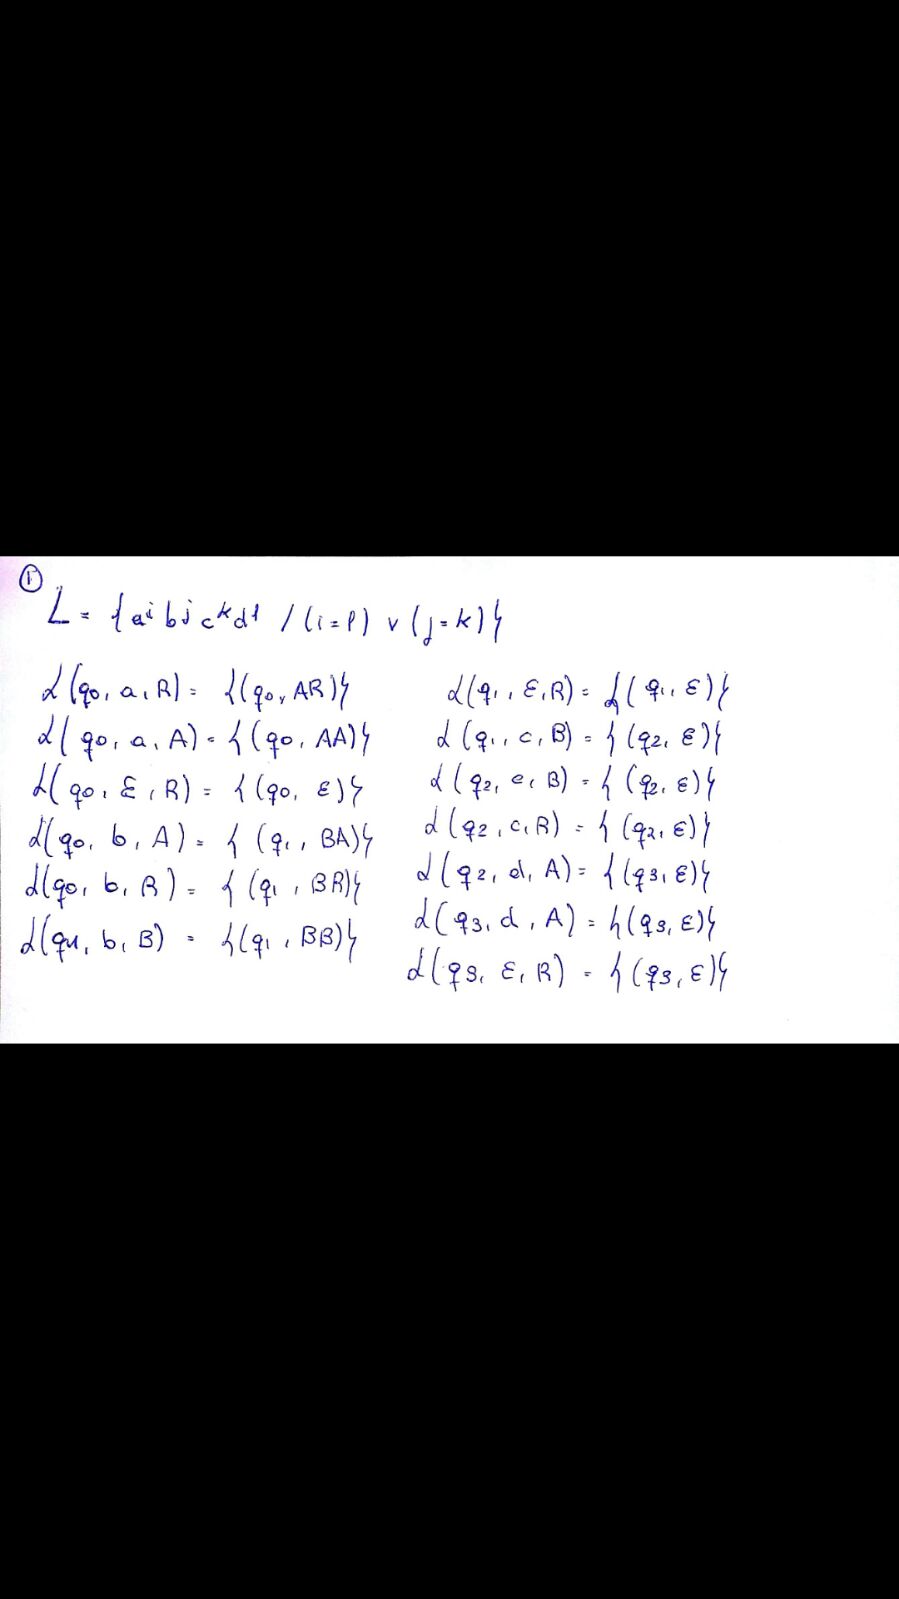 ①
L = {aⁱ bʲ cᵏ dˡ / (i=l) ∨ (j=k)}
δ(q0, a, R) = {(q0, AR)}
δ(q0, a, A) = {(q0, AA)}
δ(q0, ε, R) = {(q0, ε)}
δ(q0, b, A) = {(q1, BA)}
δ(q0, b, R) = {(q1, BR)}
δ(q1, b, B) = {(q1, BB)}
δ(q1, ε, R) = {(q1, ε)}
δ(q1, c, B) = {(q2, ε)}
δ(q2, c, B) = {(q2, ε)}
δ(q2, c, R) = {(q2, ε)}
δ(q2, d, A) = {(q3, ε)}
δ(q3, d, A) = {(q3, ε)}
δ(q3, ε, R) = {(q3, ε)}